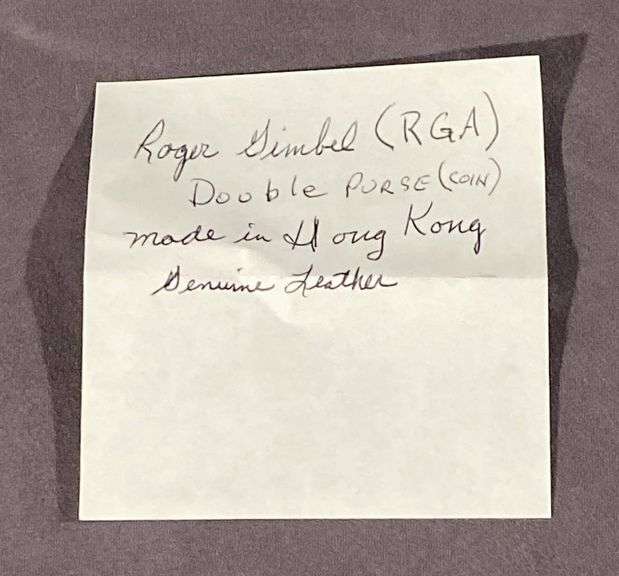 Roger Gimbel (RGA)
Double PURSE (COIN)
made in Hong Kong
Genuine Leather